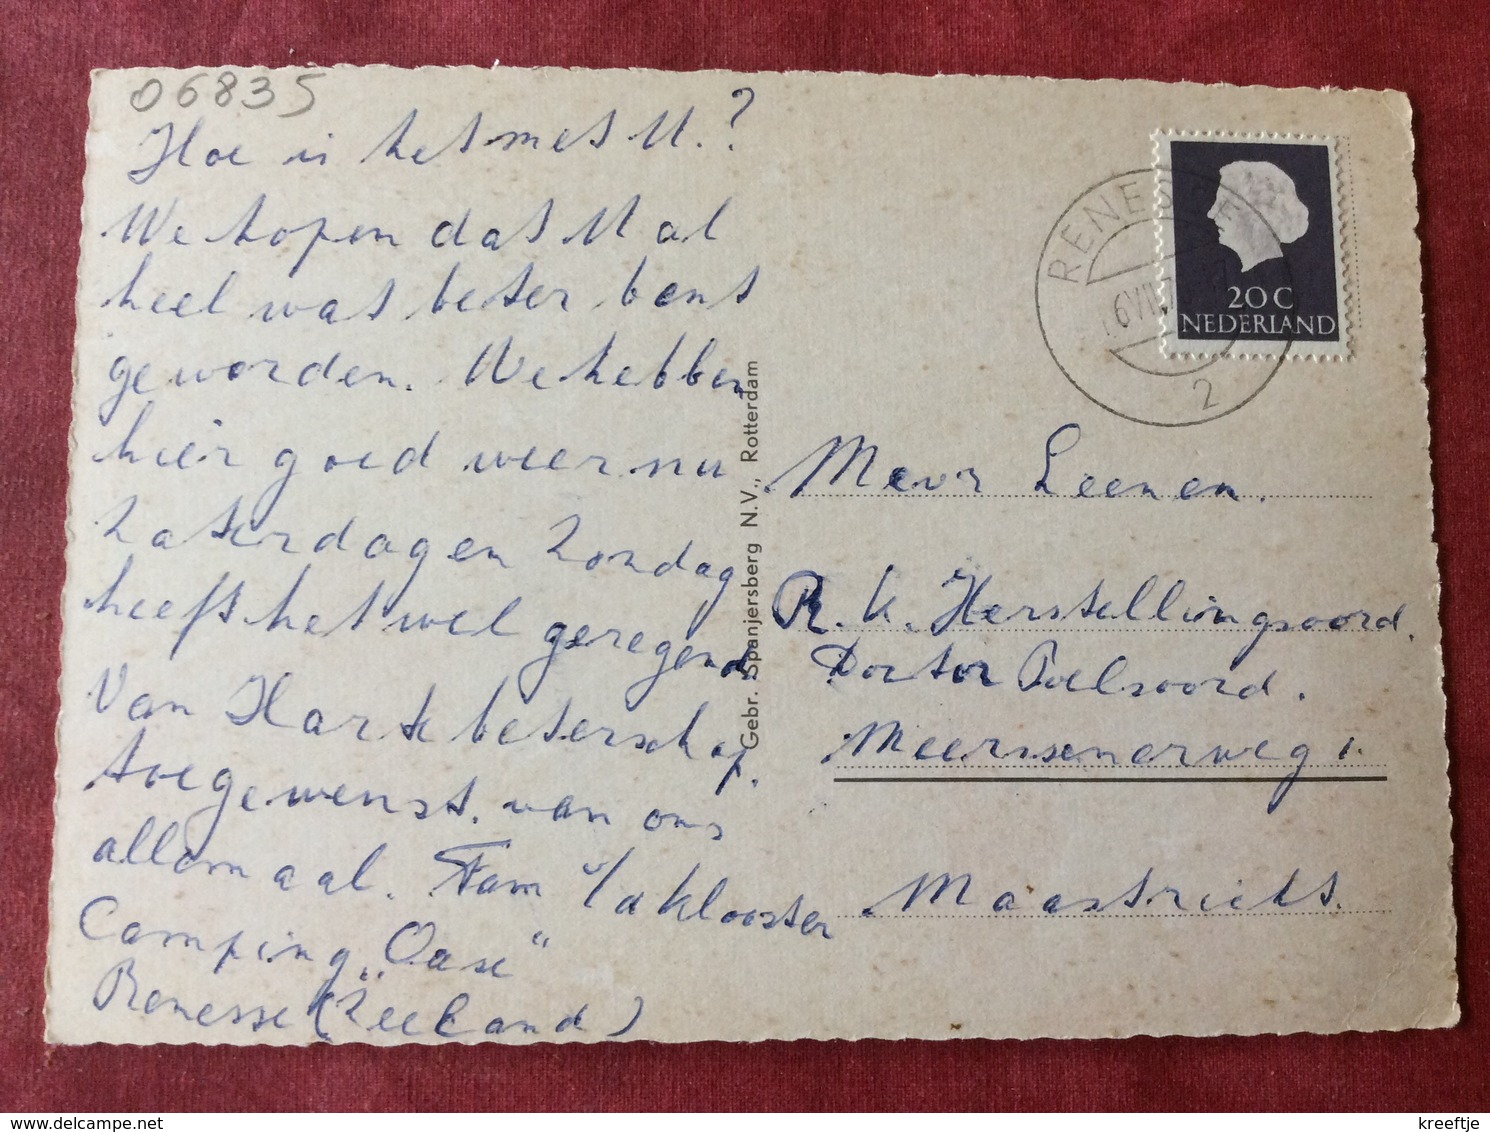 06835
Hoe is het met U.?
We hopen dat U al
heel wat beter bent
geworden. We hebben
hier goed weer nu
Zaterdag en Zondag
heeft het wel geregend
Van Harte beterschap
toegewenst. van ons
allemaal. Fam v/d Klooster
Camping „Oase"
Renesse (Zeeland)
Gebr. Spanjersberg N.V., Rotterdam
RENESSE
2
20C
NEDERLAND
Mevr Leenen.
R.K. Herstellingsoord.
Doctor Poelsoord.
Meerssenerweg 1.
Maastricht.
kreeftje